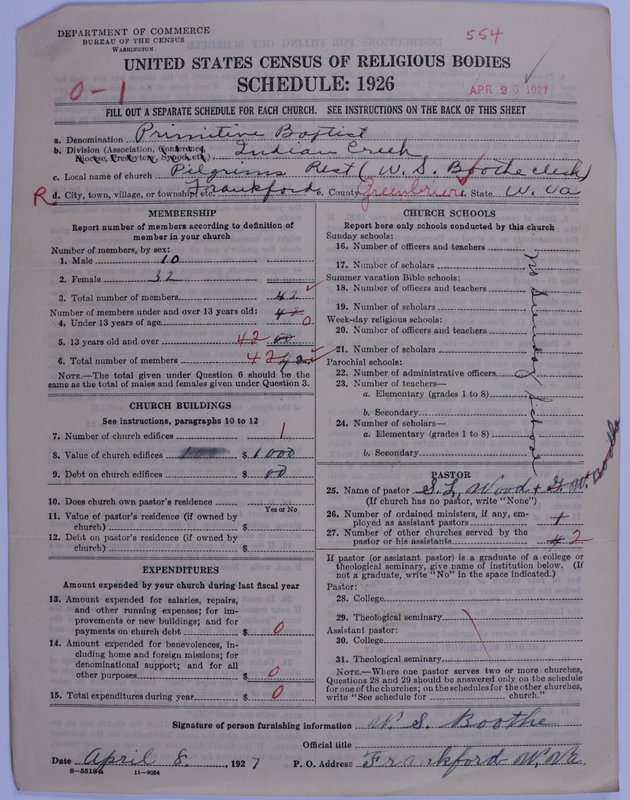 DEPARTMENT OF COMMERCE
BUREAU OF THE CENSUS
WASHINGTON
554
UNITED STATES CENSUS OF RELIGIOUS BODIES
SCHEDULE: 1926
0-1
APR 26 1927
FILL OUT A SEPARATE SCHEDULE FOR EACH CHURCH. SEE INSTRUCTIONS ON THE BACK OF THIS SHEET
a. Denomination Primitive Baptist
b. Division (Association, Conference, Diocese, Presbytery, Synod, etc.) Indian Creek
c. Local name of church Pilgrims Rest (W. S. Boothe clerk)
R d. City, town, village, or township, etc. Frankford e. County Greenbrier f. State W. Va
MEMBERSHIP
Report number of members according to definition of
member in your church
Number of members, by sex:
1. Male 10
2. Female 32
3. Total number of members 42
Number of members under and over 13 years old: 42
4. Under 13 years of age 0
5. 13 years old and over 42 00
6. Total number of members 42 42
NOTE.—The total given under Question 6 should be the
same as the total of males and females given under Question 3.
CHURCH BUILDINGS
See instructions, paragraphs 10 to 12
7. Number of church edifices 1
8. Value of church edifices $ 1000
9. Debt on church edifices $ 00
10. Does church own pastor's residence
Yes or No
11. Value of pastor's residence (if owned by
church) $
12. Debt on pastor's residence (if owned by
church) $
EXPENDITURES
Amount expended by your church during last fiscal year
13. Amount expended for salaries, repairs,
and other running expenses; for im-
provements or new buildings; and for
payments on church debt $ 0
14. Amount expended for benevolences, in-
cluding home and foreign missions; for
denominational support; and for all
other purposes $ 0
15. Total expenditures during year $ 0
CHURCH SCHOOLS
Report here only schools conducted by this church
Sunday schools:
16. Number of officers and teachers
17. Number of scholars
Summer vacation Bible schools:
18. Number of officers and teachers
19. Number of scholars
Week-day religious schools:
20. Number of officers and teachers
21. Number of scholars
Parochial schools:
22. Number of administrative officers
23. Number of teachers—
a. Elementary (grades 1 to 8)
b. Secondary
24. Number of scholars—
a. Elementary (grades 1 to 8)
b. Secondary
no Sunday School
PASTOR
25. Name of pastor S. L. Wood + G. W. Boothe
(If church has no pastor, write "None")
26. Number of ordained ministers, if any, em-
ployed as assistant pastors 1
27. Number of other churches served by the
pastor or his assistants 2
If pastor (or assistant pastor) is a graduate of a college or
theological seminary, give name of institution below. (If
not a graduate, write "No" in the space indicated.)
Pastor:
28. College
29. Theological seminary
Assistant pastor:
30. College
31. Theological seminary
NOTE.—Where one pastor serves two or more churches,
Questions 28 and 29 should be answered only on the schedule
for one of the churches; on the schedules for the other churches,
write "See schedule for church."
Signature of person furnishing information W. S. Boothe
Official title
Date April 8, 1927 P. O. Address Frankford W. Va.
8-5518a 11-9054